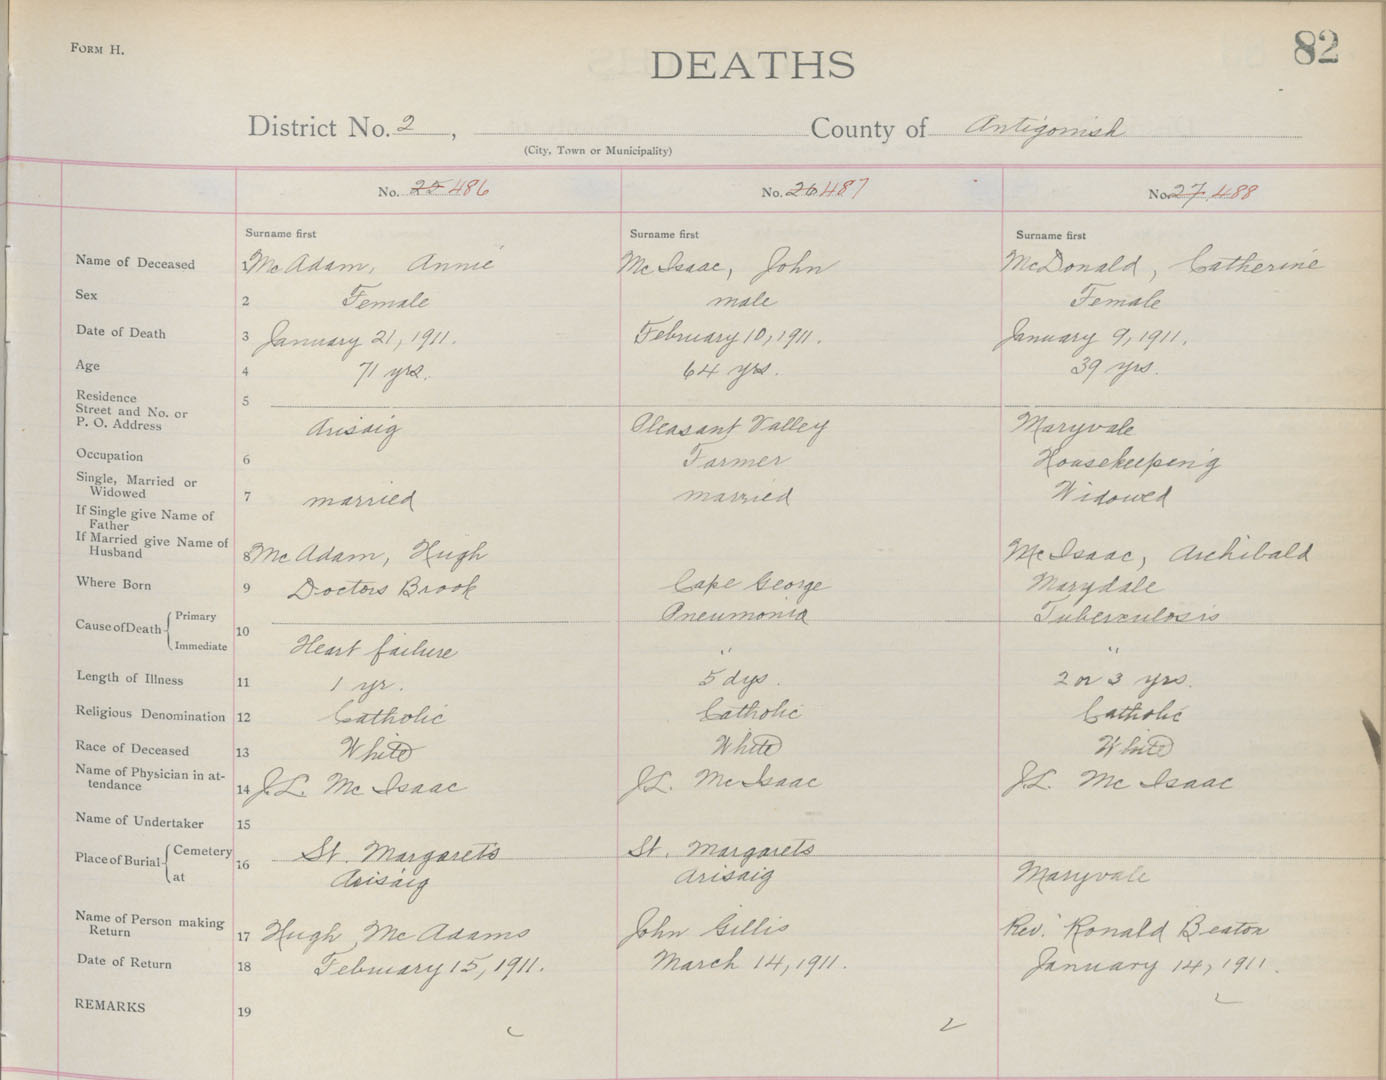 FORM H.
82
DEATHS
District No. 2, County of Antigonish
(City, Town or Municipality)
No. 25 486 No. 26 487 No. 27 488
Surname first Surname first Surname first
Name of Deceased 1 McAdam, Annie McIsaac, John McDonald, Catherine
Sex 2 Female male Female
Date of Death 3 January 21, 1911. February 10, 1911. January 9, 1911.
Age 4 71 yrs. 64 yrs. 39 yrs.
Residence 5
Street and No. or
P. O. Address Arisaig Pleasant Valley Maryvale
Occupation 6 Farmer Housekeeping
Single, Married or
Widowed 7 married married Widowed
If Single give Name of
Father
If Married give Name of
Husband 8 McAdam, Hugh McIsaac, Archibald
Where Born 9 Doctors Brook Cape George Marydale
Cause of Death { Primary 10 Pneumonia Tuberculosis
Immediate Heart failure " "
Length of Illness 11 1 yr. 5 dys. 2 or 3 yrs.
Religious Denomination 12 Catholic Catholic Catholic
Race of Deceased 13 White White White
Name of Physician in at-
tendance 14 J.L. McIsaac J.L. McIsaac J.L. McIsaac
Name of Undertaker 15
Place of Burial { Cemetery 16 St. Margarets St. Margarets
at Arisaig Arisaig Maryvale
Name of Person making
Return 17 Hugh McAdams John Gillis Rev. Ronald Beaton
Date of Return 18 February 15, 1911. March 14, 1911. January 14, 1911.
REMARKS 19